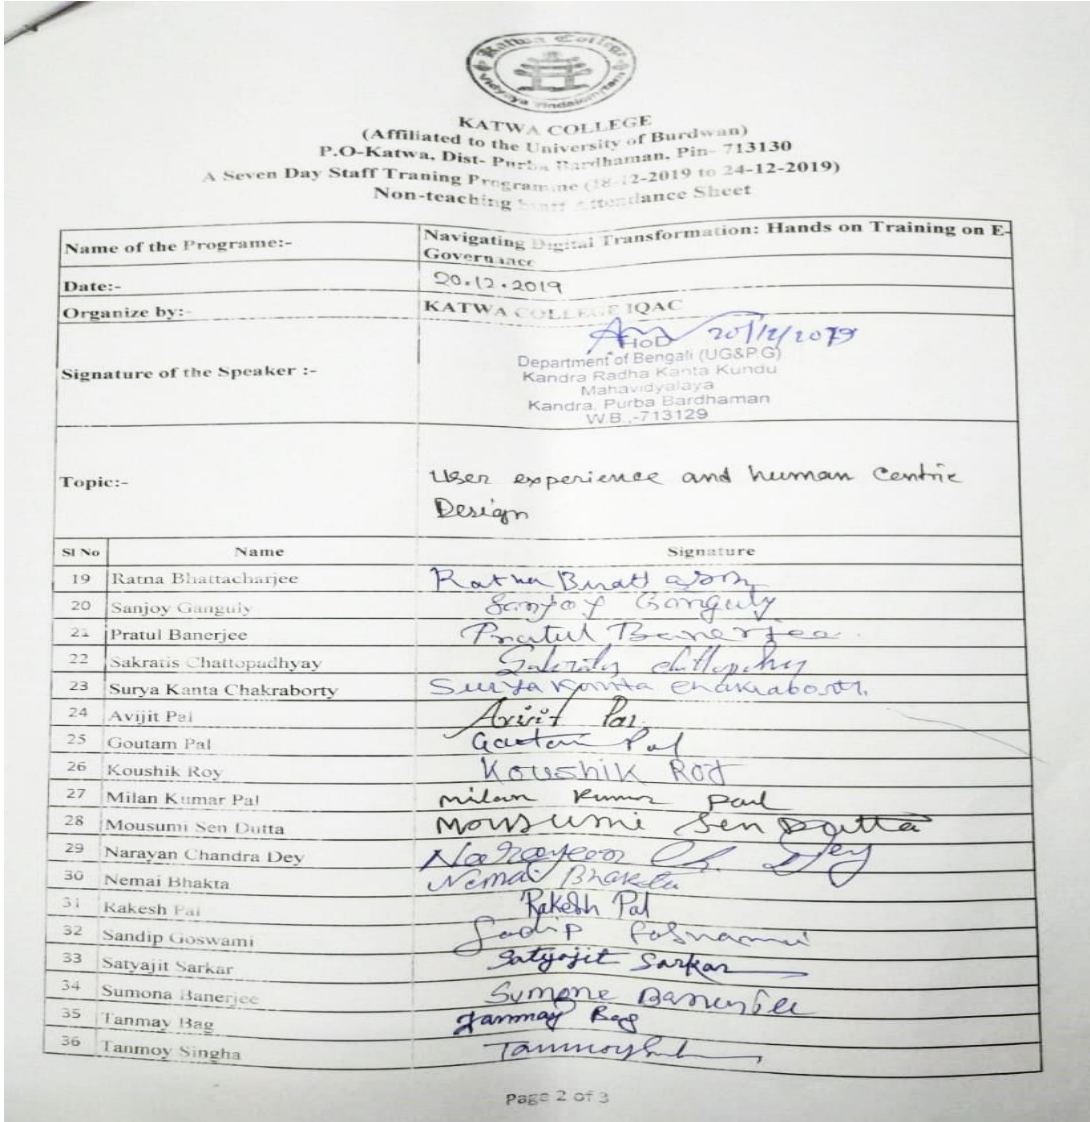 Katwa College
KATWA COLLEGE
(Affiliated to the University of Burdwan)
P.O-Katwa, Dist- Purba Bardhaman, Pin- 713130
A Seven Day Staff Traning Programme (18-12-2019 to 24-12-2019)
Non-teaching Staff Attendance Sheet
Name of the Programe:- Navigating Digital Transformation: Hands on Training on E-
Governance
Date:- 20.12.2019
Organize by:- KATWA COLLEGE IQAC
20/12/2019
HoD
Department of Bengali (UG&PG)
Kandra Radha Kanta Kundu
Mahavidyalaya
Kandra, Purba Bardhaman
W.B.,-713129
Signature of the Speaker :-
Topic:- User experience and human Centric
Design
Sl No Name Signature
19 Ratna Bhattacharjee Ratna
20 Sanjoy Ganguly Sanjoy Ganguly
21 Pratul Banerjee Pratul Banerjee
22 Sakratis Chattopadhyay
23 Surya Kanta Chakraborty Surya Kanta Chakraborty
24 Avijit Pal Avijit Pal
25 Goutam Pal Goutam Pal
26 Koushik Roy Koushik Roy
27 Milan Kumar Pal Milan Kumar Paul
28 Mousumi Sen Dutta Mousumi Sen Dutta
29 Narayan Chandra Dey Narayan Ch. Dey
30 Nemai Bhakta Nemai Bhakta
31 Rakesh Pal Rakesh Pal
32 Sandip Goswami
33 Satyajit Sarkar Satyajit Sarkar
34 Sumona Banerjee Sumona Banerjee
35 Tanmay Bag Tanmay Bag
36 Tanmoy Singha Tanmoy
Page 2 of 3